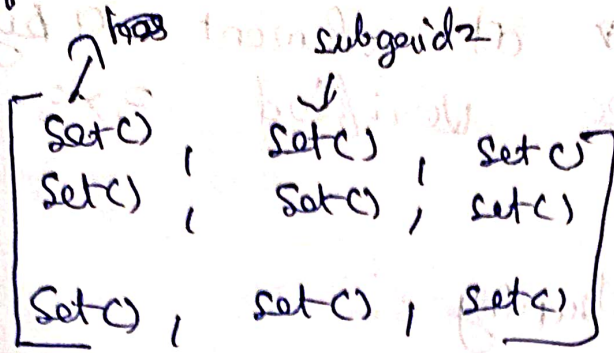 subgrid2
set() , set() , set()
set() , set() , set()
set() , set() , set()